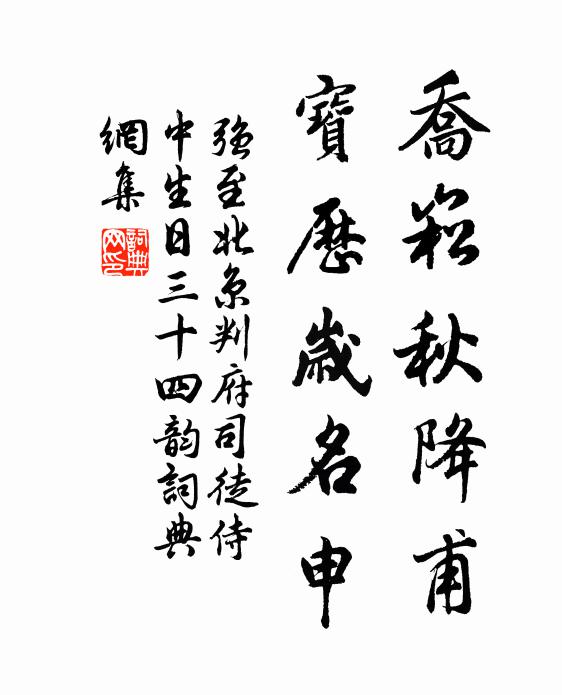 喬崧秋降甫
寶歷歲名申
強至北京判府司徒侍
中生日三十四韵詞典
網集
詞典
网印